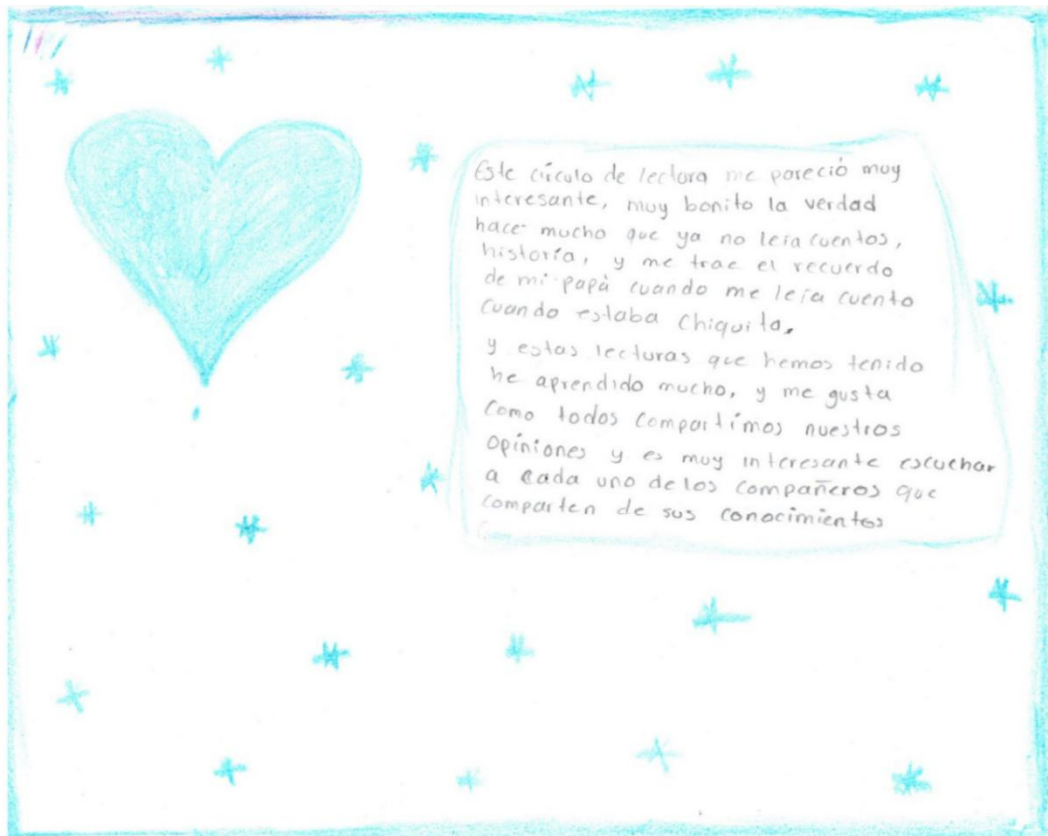 Este círculo de lectora me pareció muy
interesante, muy bonito la verdad
hace mucho que ya no leía cuentos,
historía, y me trae el recuerdo
de mi papà cuando me leía cuento
cuando estaba Chiquita.
y estas lecturas que hemos tenido
he aprendido mucho, y me gusta
Como todos compartímos nuestros
Opiniones y es muy interesante escuchar
a cada uno de los compañeros que
comparten de sus conocimientos